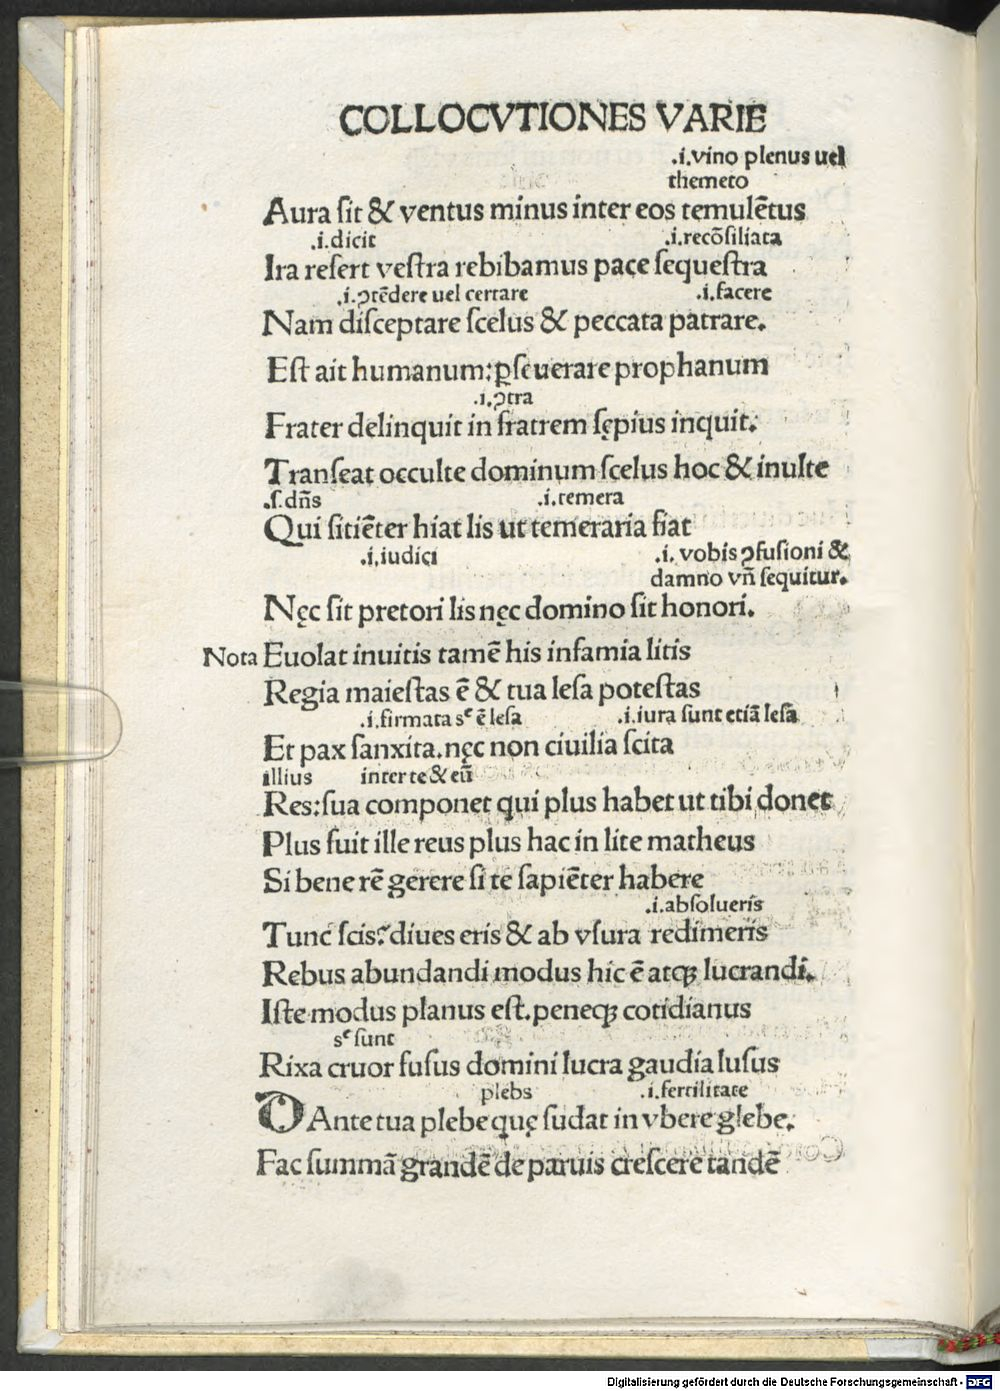 COLLOCVTIONES VARIE
.i.vino plenus uel
themeto
Aura ſit & ventus minus inter eos temulētus
.i.dicit .i.recōſiliata
Ira refert veſtra rebibamus pace ſequeſtra
.i.ꝯtēdere uel certare .i.facere
Nam diſceptare ſcelus & peccata patrare.
Eſt ait humanum:ꝑſeuerare prophanum
.i.ꝯtra
Frater delinquit in fratrem ſępius inquit.
Tranſeat occulte dominum ſcelus hoc & inulte
.ſ.dn̄s .i.temera
Qui ſitiēter hiat lis ut temeraria fiat
.i.iudici .i. vobis ꝯfuſioni &
damno vn̄ ſequitur.
Nęc ſit pretori lis nęc domino ſit honori.
Nota Euolat inuitis tamē his infamia litis
Regia maieſtas ē & tua leſa poteſtas
.i.firmata sᶜ ē leſa .i.iura ſunt etiā leſa
Et pax ſanxita.nęc non ciuilia ſcita
illius inter te & eū
Res:ſua componet qui plus habet ut tibi donet
Plus fuit ille reus plus hac in lite matheus
Si bene rē gerere ſi te ſapiēter habere
.i.abſolueris
Tunc ſcis? diues eris & ab vſura redimeris
Rebus abundandi modus hic ē atqꝫ lucrandi.
Iſte modus planus eſt.peneqꝫ cotidianus
sᶜ ſunt
Rixa cruor fuſus domini lucra gaudia luſus
plebs .i.fertilitate
DAnte tua plebe quę ſudat in vbere glebe.
Fac ſummā grandē de paruis creſcere tandē
Digitalisierung gefördert durch die Deutsche Forschungsgemeinschaft - DFG